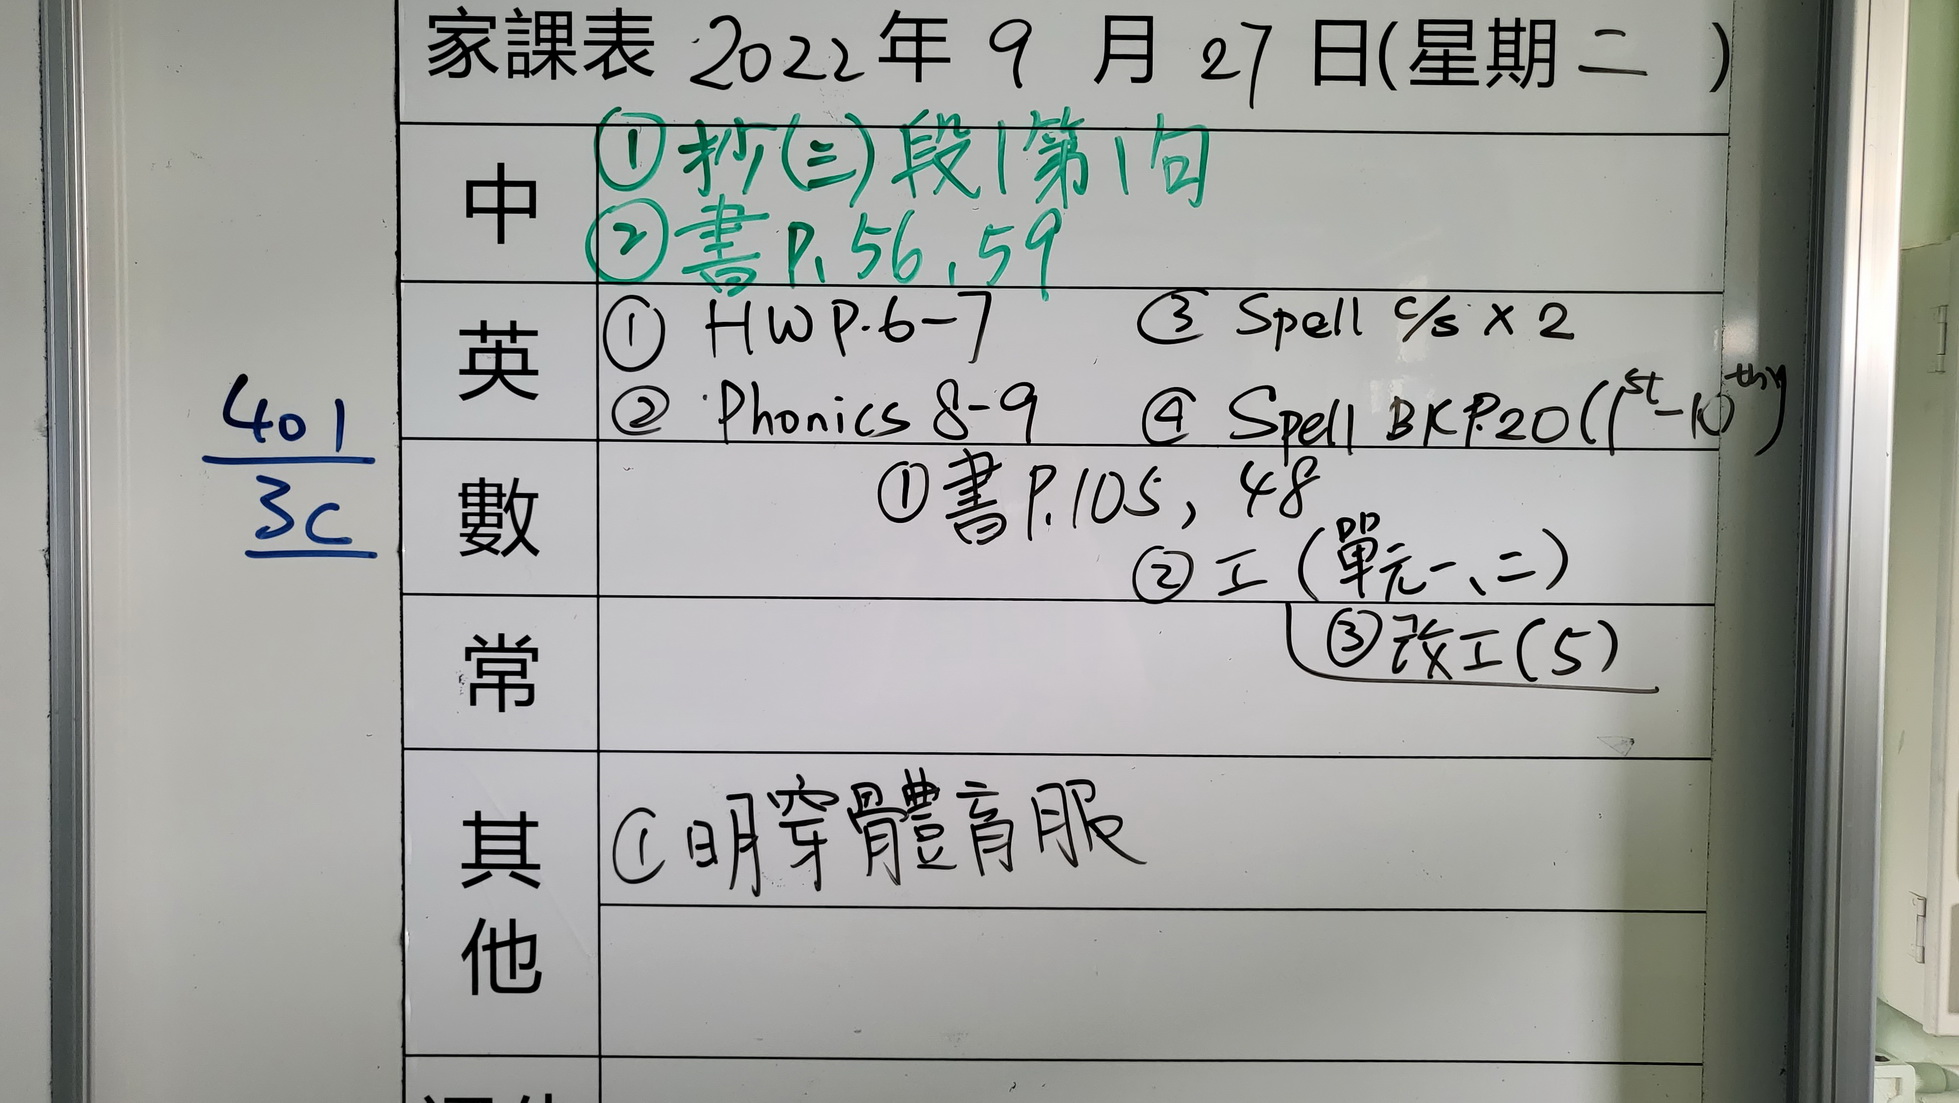 家課表 2022年9月27日(星期二)
中
①抄(三)段1第1句
②書P.56,59
英
① HW P.6-7
③ Spell c/s x 2
② Phonics 8-9
④ Spell BK P.20 (1st-10th)
401
3C
數
①書P.105, 48
②工(單元一、二)
③改工(5)
常
其他
①明穿體育服